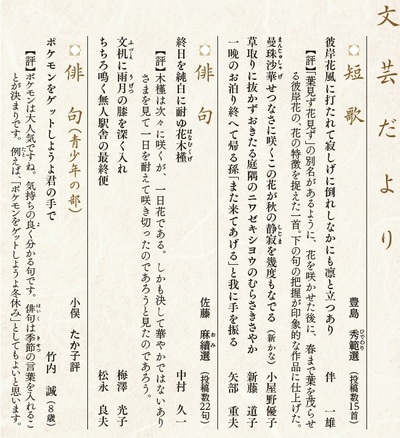 文芸だより
短歌
豊島　秀範選（投稿数15首）
ひでのり
彼岸花風に打たれて寂しげに倒れしなかにも凛と立つあり　伴　一雄
【評】「葉見ず花見ず」の別名があるように、花を咲かせた後に、春まで葉を茂らせ
る彼岸花の、花の特徴を捉えた一首。下の句の把握が印象的な作品に仕上げた。
まんじゅしゃげ
しじま
曼珠沙華せつなさに咲くこの花が秋の静寂を幾度もなでる（新かな）小屋野優子
草取りに抜かずおきたる庭隅のニワゼキショウのむらさきさやか　新藤　道子
一晩のお泊り終へて帰る孫「また来てあげる」と我に手を振る　矢部　重夫
俳句
佐藤　麻績選（投稿数22句）
おみ
はなむくげ
終日を純白に耐ゆ花木槿　中村　久一
【評】木槿は次々に咲くが、一日花である。しかも決して華やかではないあり
さまを見て一日を耐えて咲き切ったのであろうと見たのであろう。
ふづくえ
うげつ
文机に雨月の膝を深く入れ　梅澤　光子
ちちろ鳴く無人駅舎の最終便　松永　良夫
俳句（青少年の部）
小俣　たか子評
ポケモンをゲットしようよ君の手で　竹内　誠（8歳）
【評】ポケモンは大人気ですね。気持ちの良く分かる句です。俳句は季節の言葉を入れるこ
はいく
きせつ
とが決まりです。例えば、「ポケモンをゲットしようよ冬休み」としてもよいと思います。